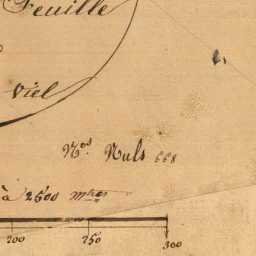 Feuille
Viel
Nos. Nuls 668
à 2500 mtres
200 250 300